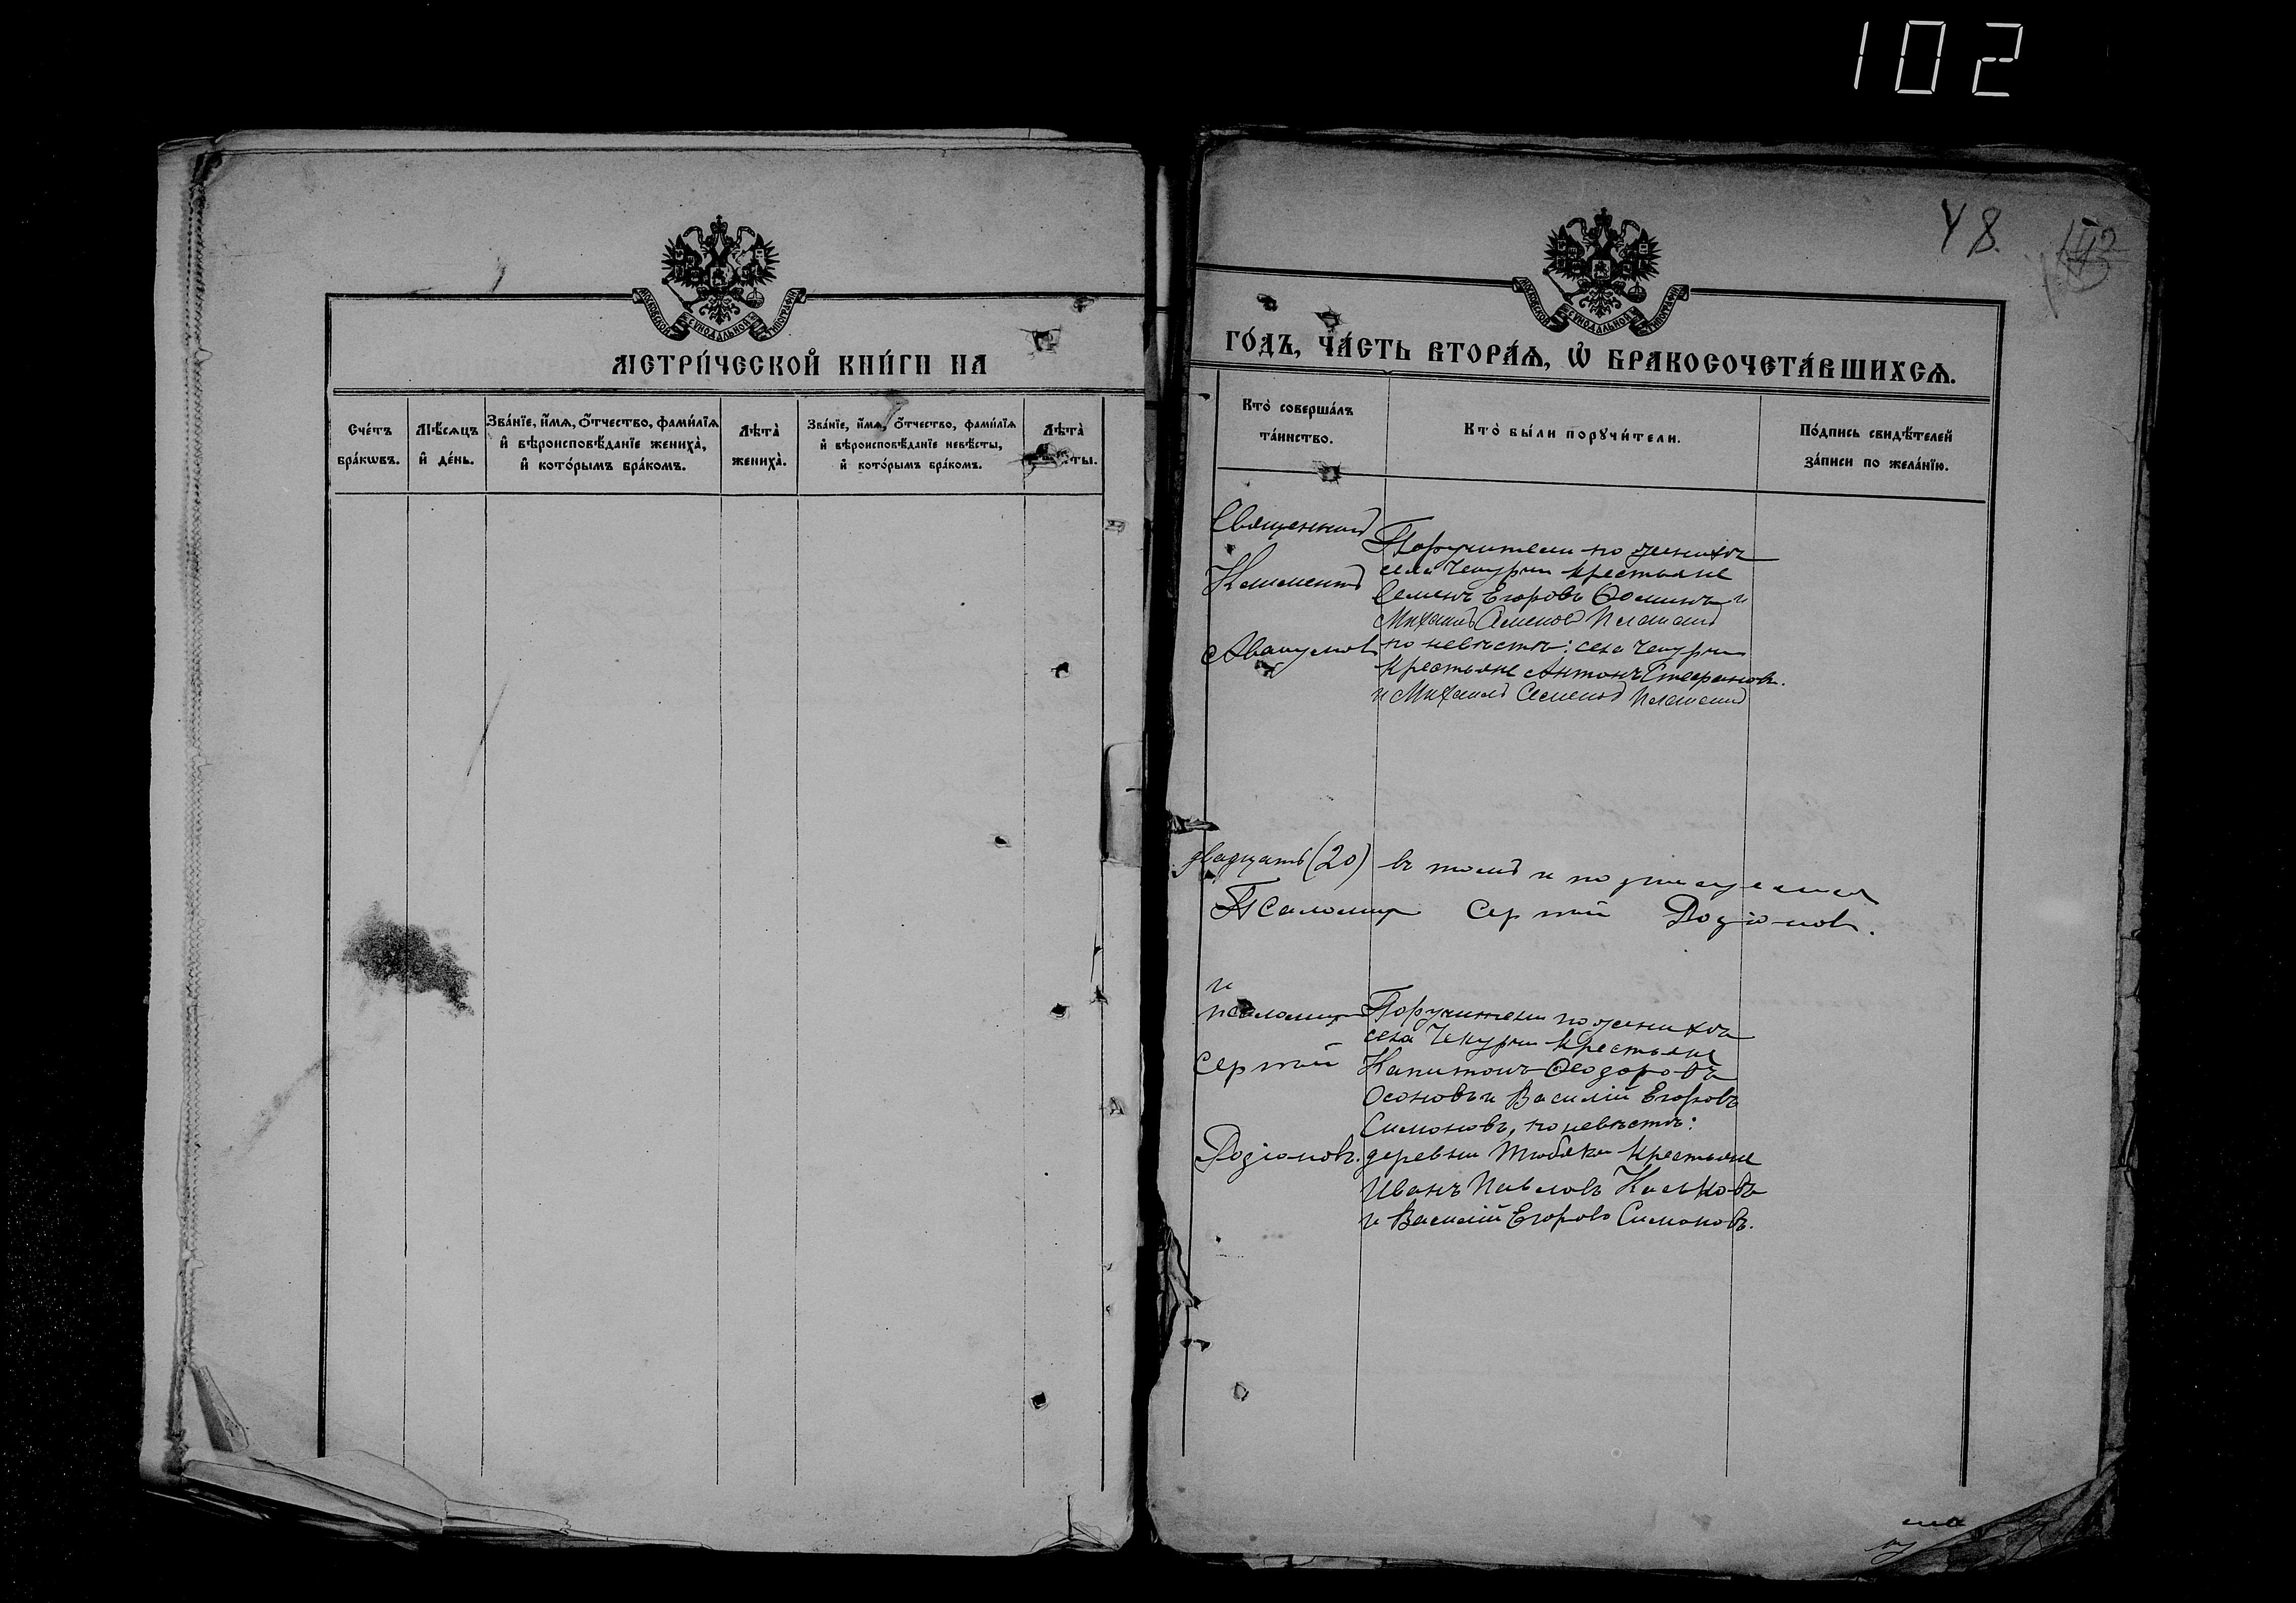 102
48.
МОСКОВСКОЙ СѴНОДАЛЬНОЙ ТИПОГРАФІИ
МЕТРИ́ЧЕСКОЙ КНИ́ГИ НА
Сче́тъ бра́кѡвъ.
Мѣ́сѧцъ и҆ де́нь.
Зва́нїе, и҆́мѧ, ѻ҆́тчество, фами́лїѧ и҆ вѣроисповѣ́данїе жениха̀, и҆ кото́рымъ бра́комъ.
Лѣ́та̀ жениха̀.
Зва́нїе, и҆́мѧ, ѻ҆́тчество, фами́лїѧ и҆ вѣроисповѣ́данїе невѣ́сты, и҆ кото́рымъ бра́комъ.
Лѣ́та̀ ты.
МОСКОВСКОЙ СѴНОДАЛЬНОЙ ТИПОГРАФІИ
ГО́ДЪ, ЧА́СТЬ ВТОРА́Ѧ, Ѡ҆ БРАКОСОЧЕТА́ВШИХСѦ.
Кто̀ соверша́лъ та́инство.
Кто̀ бы́ли порꙋчи́тели.
По́дпись свидѣ́телей за́писи по жела́нїю.
Священникъ
Климентъ
Аввакумовъ
Поручители по женихѣ
села Чекурчи крестьяне
Семенъ Егоровъ Ѳоминъ и
Михаилъ Семеновъ
по невѣстѣ: села Чекурчи
крестьяне Антонъ Стефановъ
и Михаилъ Семеновъ
двадцать (20) въ томъ и подписуемся
Псаломщ Сергѣй Родіоновъ.
и
псаломщ
Сергѣй
Родіоновъ.
Поручители по женихѣ
села Чекурчи крестьяне
Капитонъ Ѳеодоровъ
Осоновъ и Василій Егоровъ
Симоновъ, по невѣстѣ:
деревни Тюбяки крестьяне
Иванъ Павловъ Каськовъ
и Василій Егоровъ Симоновъ.